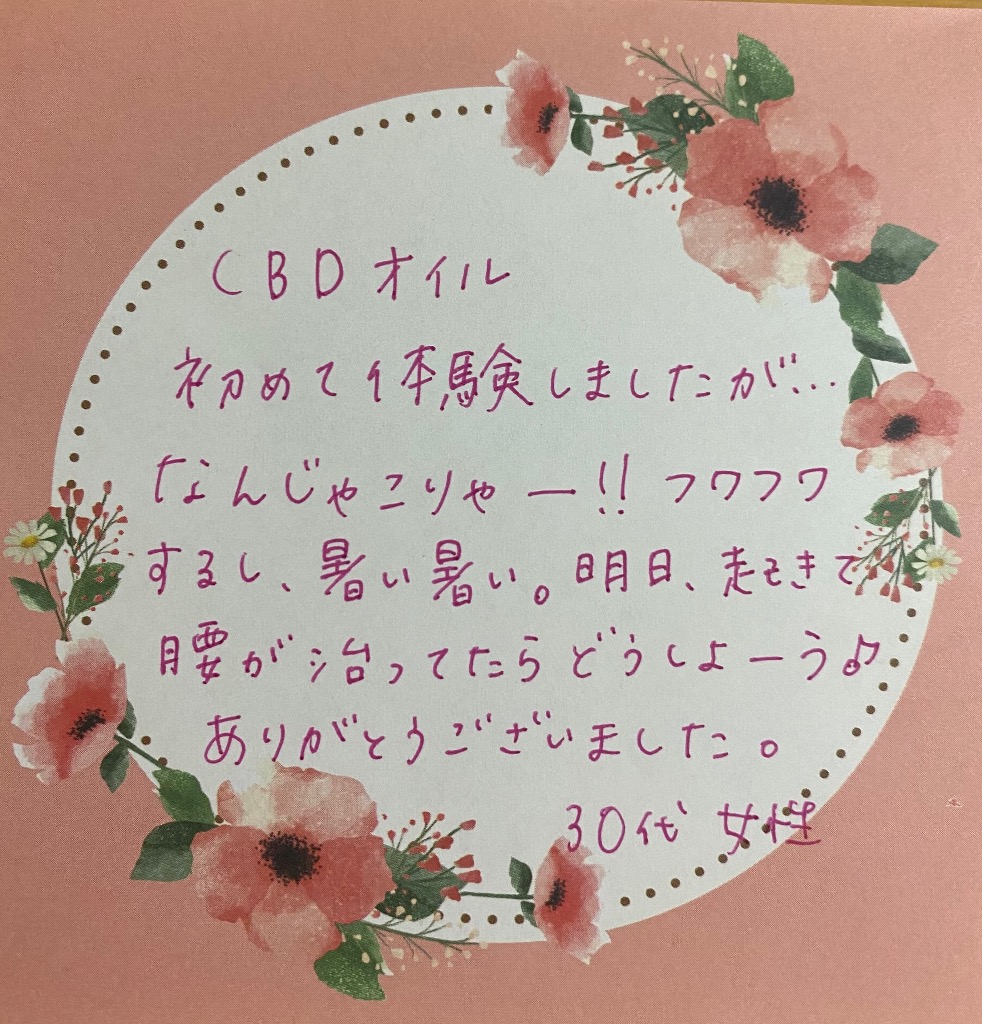 CBDオイル
初めて体験しましたが…
なんじゃこりゃー!! フワフワ
するし、暑い暑い。明日、起きて
腰が治ってたらどうしよーう♪
ありがとうございました。
30代 女性